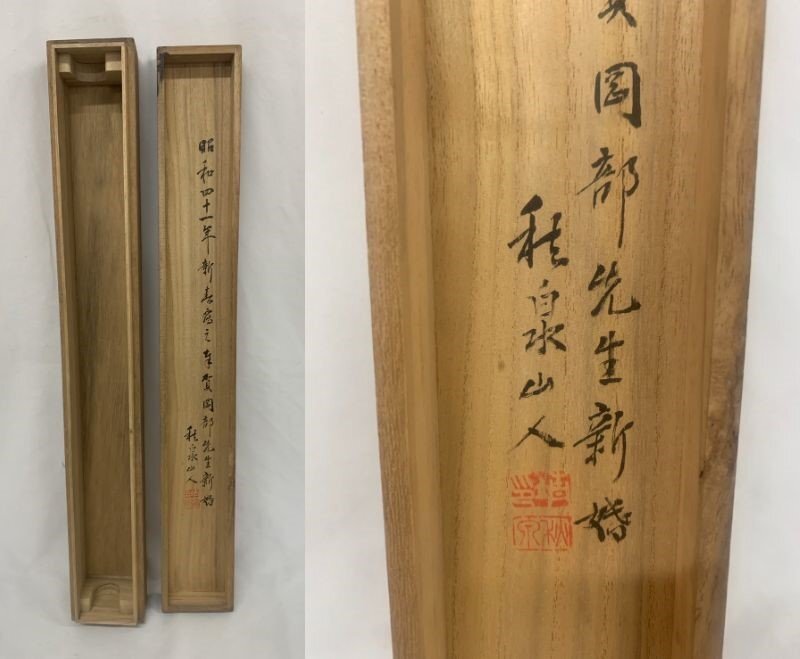 昭和四十一年新春寫之奉賀岡部先生新婚
秋泉山人
岡部先生新婚
秋泉山人